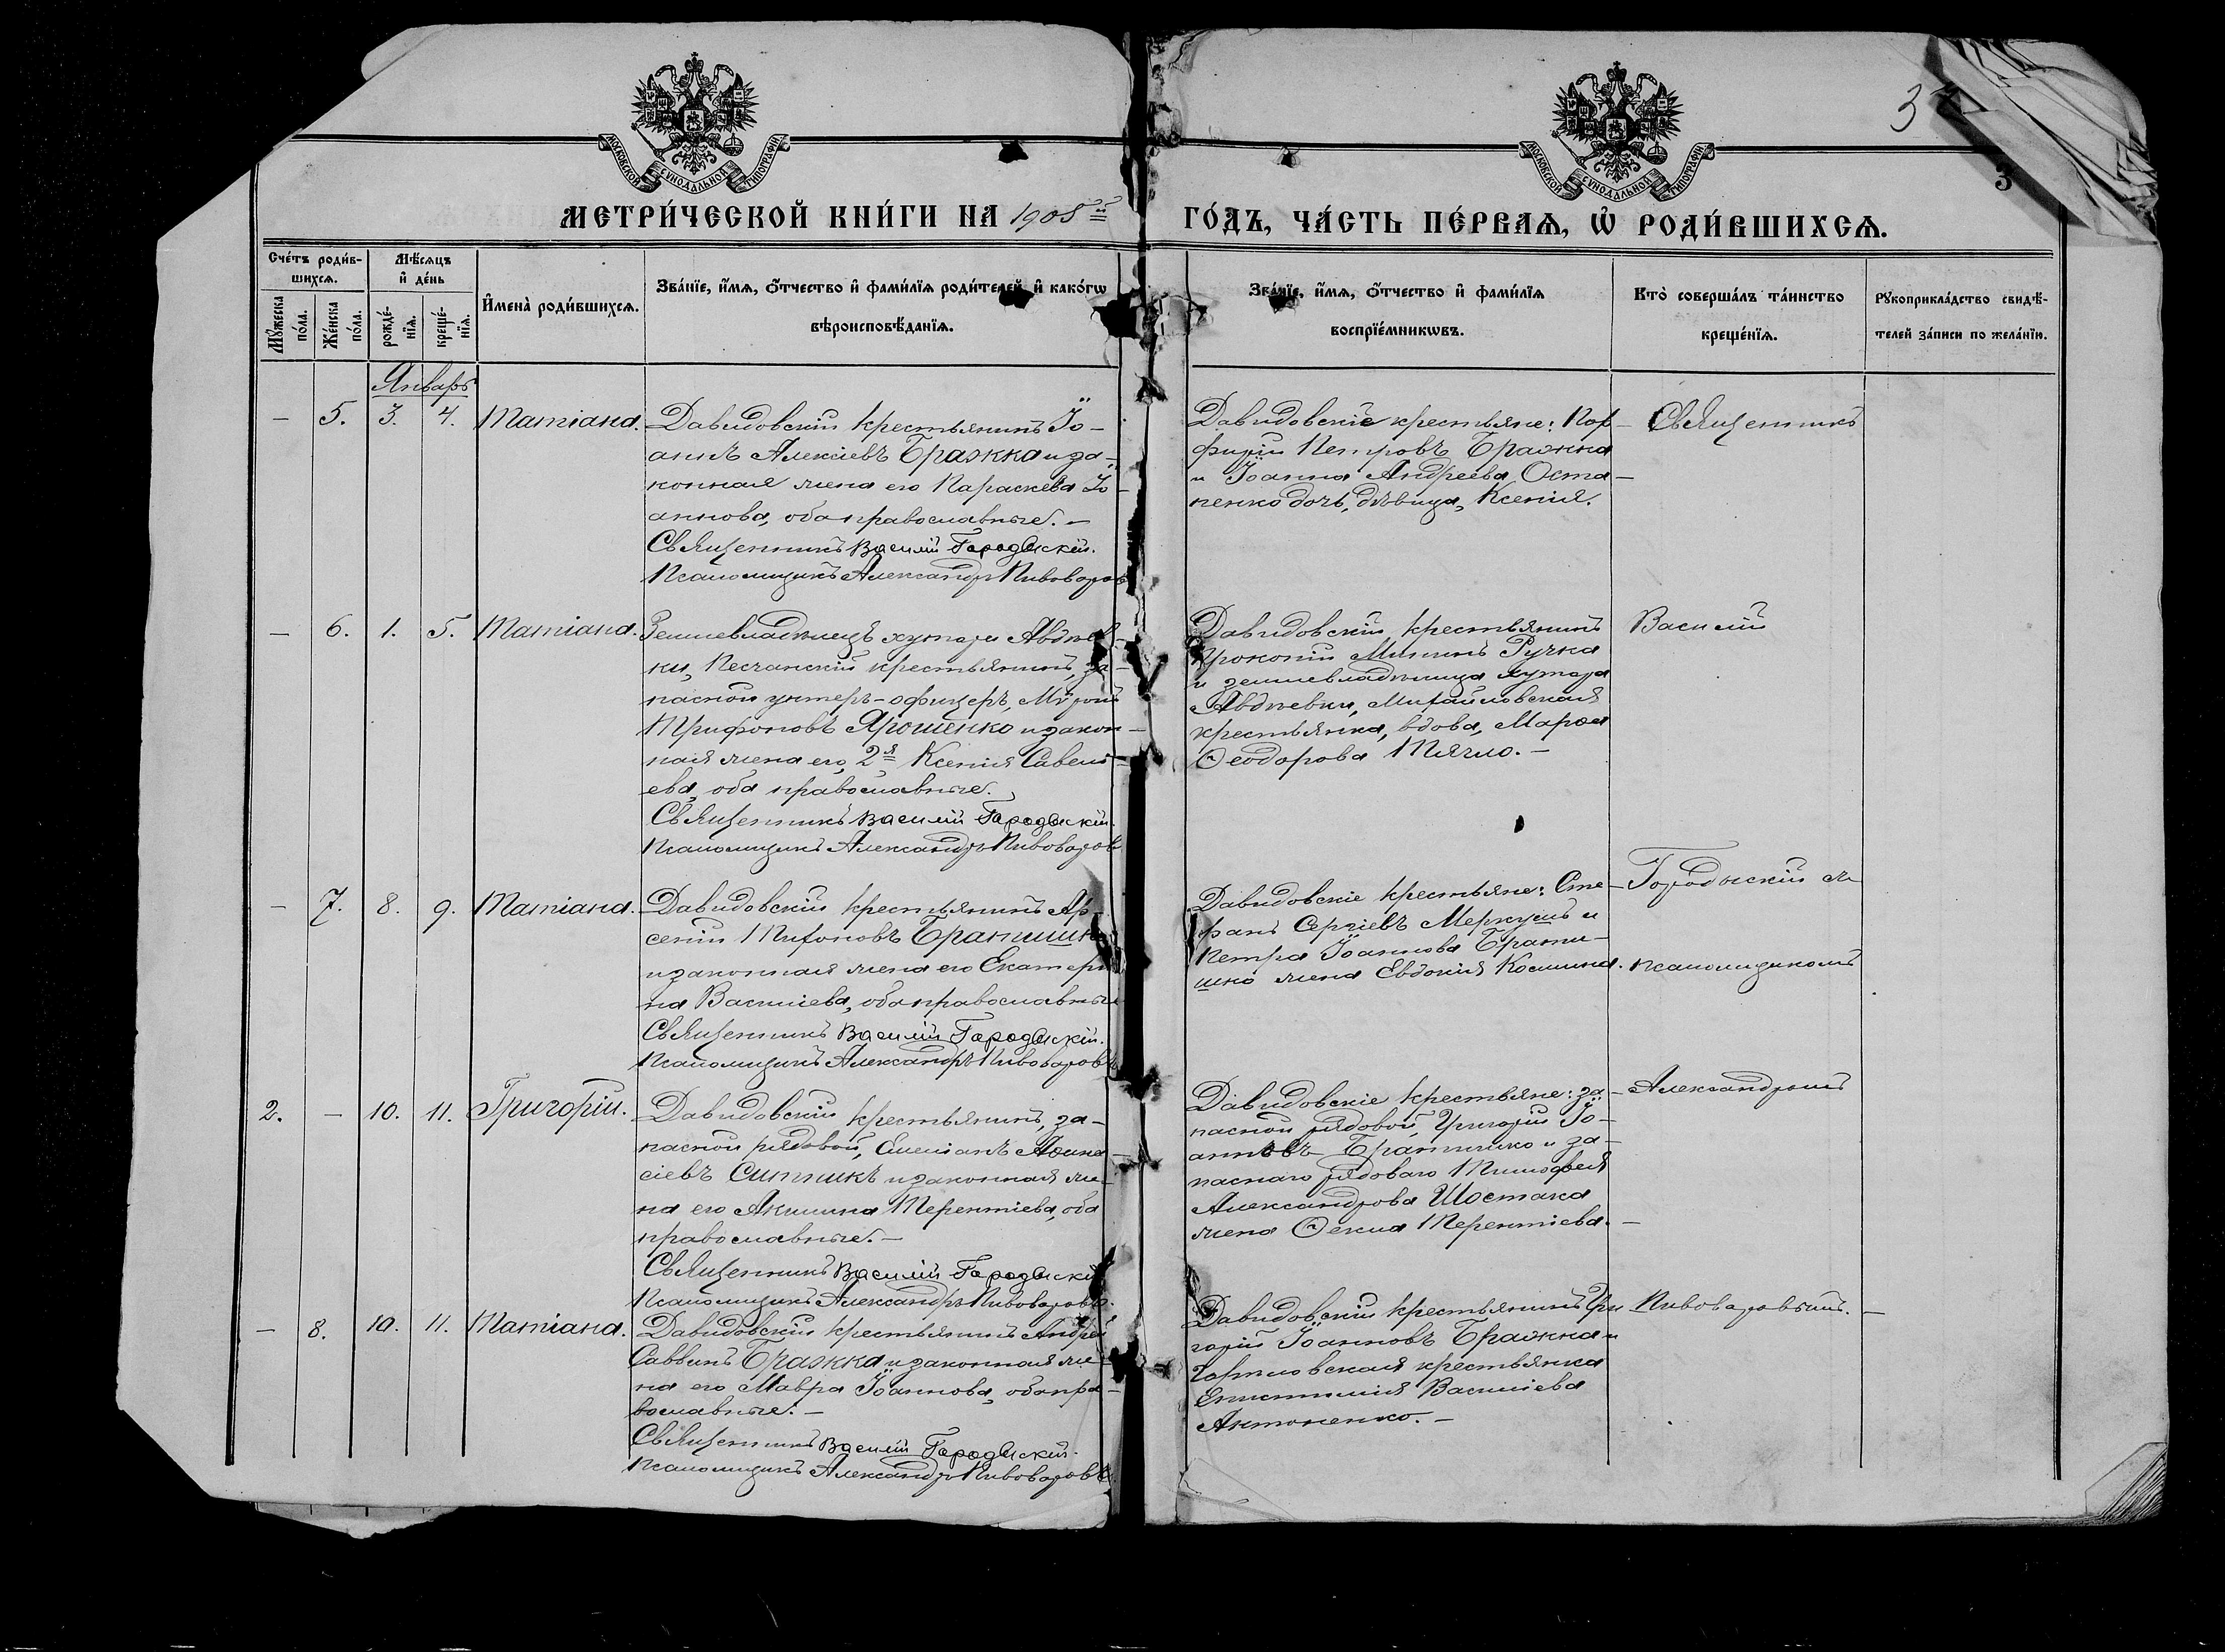 37
МОСКОВСКОЙ СѴНОДАЛЬНОЙ ТИПОГРАФІИ
МОСКОВСКОЙ СѴНОДАЛЬНОЙ ТИПОГРАФІИ
3
МЕТРИ́ЧЕСКОЙ КНИ́ГИ НА 1908й ГО́ДЪ, ЧА́СТЬ ПЕ́РВАѦ, Ѡ҆ РОДИ́ВШИХСѦ.
Сче́тъ роди́в-
шихсѧ.
Мꙋ́жеска по́ла.
Же́нска по́ла.
Мѣ́сѧцъ
и҆ де́нь
рожде́-
нїѧ.
креще́-
нїѧ.
И҆мена̀ роди́вшихсѧ.
Зва́нїе, и҆́мѧ, ѻ҆́тчество и҆ фами́лїѧ роди́телей, и҆ како́гѡ
вѣроисповѣ́данїѧ.
Зва́нїе, и҆́мѧ, ѻ҆́тчество и҆ фами́лїѧ
воспрїе́мникѡвъ.
Кто̀ соверша́лъ та́инство
креще́нїѧ.
Рꙋкоприкла́дство свидѣ́-
телей за́писи по жела́нїю.
Январь
— 5. 3. 4. Татіана.
Давидовскій крестьянинъ Іо-
аннъ Алексіевъ Бражка и за-
конная жена его Параскева Іо-
аннова, оба православные. —
Священникъ Василій Городыскій.
Псаломщикъ Александръ Пивоваровъ
Давидовскіе крестьяне: Пор-
фирій Петровъ Бражка
и Іоанна Андреева Оста-
пенко дочь, дѣвица, Ксенія.
Священникъ
— 6. 1. 5. Татіана.
Землевладѣлецъ хутора Авдѣев-
ки, Песчанскій крестьянинъ, за-
пасной унтеръ-офицеръ, Мѵронъ
Трифоновъ Ярошенко и закон-
ная жена его, 2я Ксенія Савели-
ева, оба православные.
Священникъ Василій Городыскій.
Псаломщикъ Александръ Пивоваровъ
Давидовскій крестьянинъ
Прокопій Мининъ Ручка
и землевладѣлица хутора
Авдѣевки, Михайловская
крестьянка, вдова, Марѳа
Ѳеодорова Тягло. —
Василій
— 7. 8. 9. Татіана.
Давидовскій крестьянинъ Ар-
сеній Тихоновъ Братишко
и законная жена его Екатери-
на Василіева, оба православные
Священникъ Василій Городыскій.
Псаломщикъ Александръ Пивоваровъ
Давидовскіе крестьяне: Сте-
фанъ Сергіевъ Меркушъ и
Петра Іоаннова Брати-
шко жена Евдокія Космина.
Городыскій съ
псаломщикомъ
2. — 10. 11. Григорій.
Давидовскій крестьянинъ, за-
пасной рядовой, Емеліанъ Аѳана-
сіевъ Ситникъ и законная же-
на его Акилина Терентіева, оба
православные. —
Священникъ Василій Городыскій
Псаломщикъ Александръ Пивоваровъ.
Давидовскіе крестьяне: за-
пасной рядовой, Григорій Іо-
анновъ Братишко и за-
паснаго рядоваго Тимофея
Александрова Шостака
жена Ѳекла Терентіева. —
Александромъ
— 8. 10. 11. Татіана.
Давидовскій крестьянинъ Андрей
Саввинъ Бражка и законная же-
на его Мавра Іоаннова, оба пра-
вославные. —
Священникъ Василій Городыскій.
Псаломщикъ Александръ Пивоваровъ.
Давидовскій крестьянинъ Гри-
горій Іоанновъ Бражка и
крестьянка
Епистимія Василіева
Антоненко. —
Пивоваровымъ. —